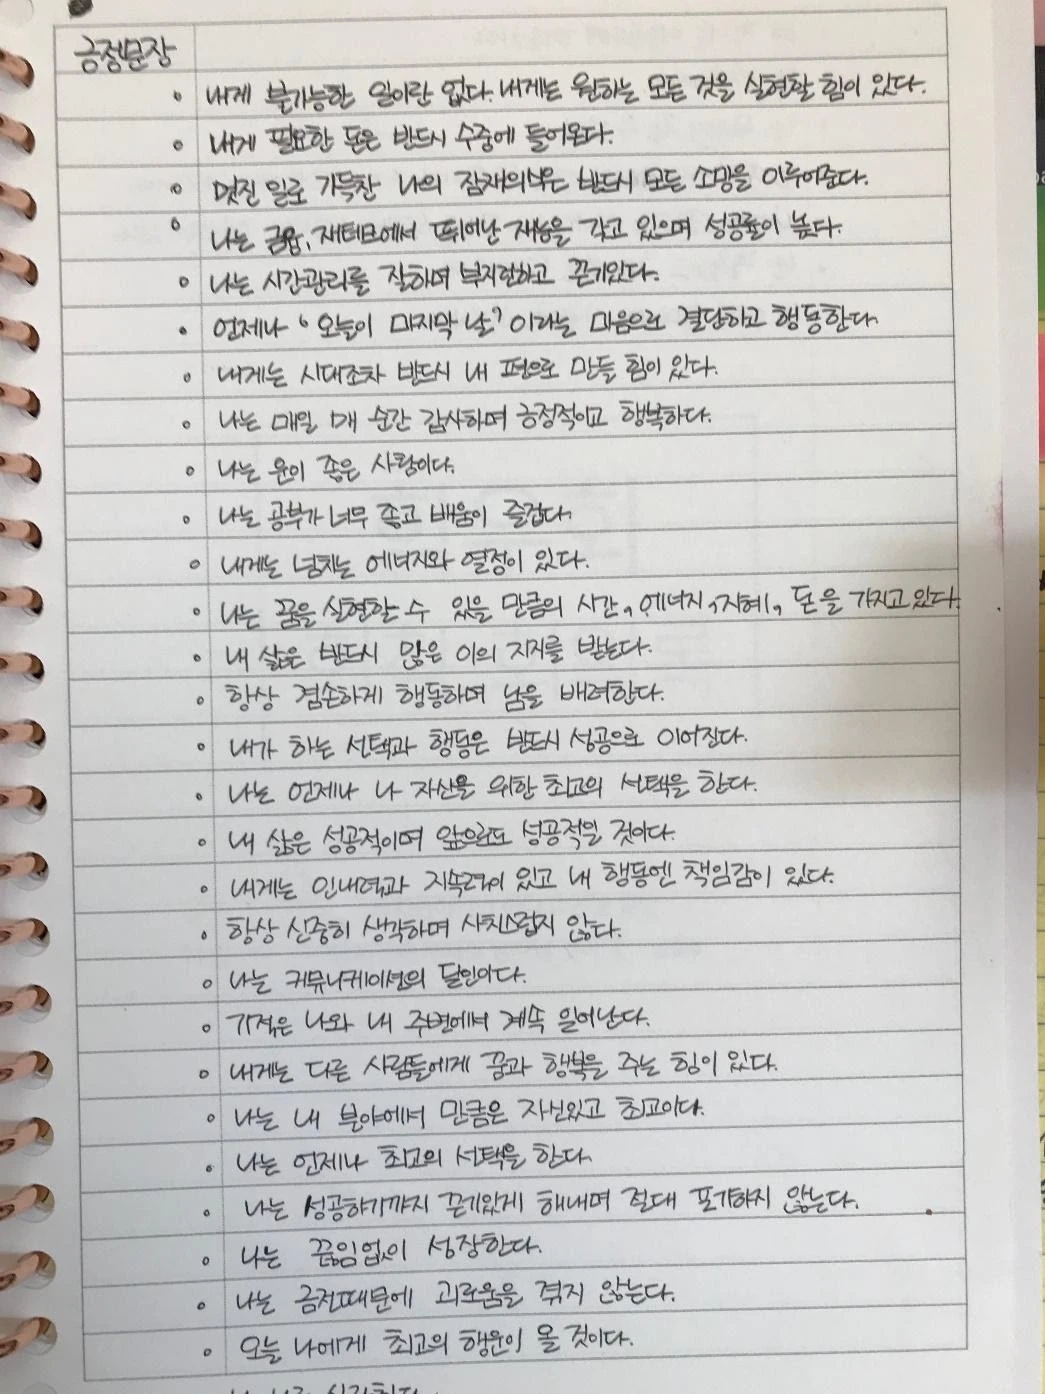 긍정문장
내게 불가능한 일이란 없다. 내게는 원하는 모든 것을 실현할 힘이 있다.
내게 필요한 돈은 반드시 수중에 들어온다.
멋진 일로 가득찬 나의 잠재의식은 반드시 모든 소망을 이루어준다.
나는 금융, 재테크에서 뛰어난 재능을 갖고 있으며 성공률이 높다.
나는 시간관리를 잘하며 부지런하고 끈기있다.
언제나 "오늘이 마지막 날" 이라는 마음으로 결단하고 행동한다.
내게는 시대조차 반드시 내 편으로 만들 힘이 있다.
나는 매일 매 순간 감사하며 긍정적이고 행복하다.
나는 운이 좋은 사람이다.
나는 공부가 너무 좋고 배움이 즐겁다.
내게는 넘치는 에너지와 열정이 있다.
나는 꿈을 실현할 수 있을 만큼의 시간, 에너지, 지혜, 돈을 가지고 있다.
내 삶은 반드시 많은 이의 지지를 받는다.
항상 겸손하게 행동하며 남을 배려한다.
내가 하는 선택과 행동은 반드시 성공으로 이어진다.
나는 언제나 나 자신을 위한 최고의 선택을 한다.
내 삶은 성공적이며 앞으로도 성공적일 것이다.
내게는 인내력과 지속력이 있고 내 행동엔 책임감이 있다.
항상 신중히 생각하며 사치스럽지 않다.
나는 커뮤니케이션의 달인이다.
기적은 나와 내 주변에서 계속 일어난다.
내게는 다른 사람들에게 꿈과 행복을 주는 힘이 있다.
나는 내 분야에서 만큼은 자신있고 최고이다.
나는 언제나 최고의 선택을 한다.
나는 성공하기까지 끈기있게 해내며 절대 포기하지 않는다.
나는 끊임없이 성장한다.
나는 금전때문에 괴로움을 겪지 않는다.
오늘 나에게 최고의 행운이 올 것이다.